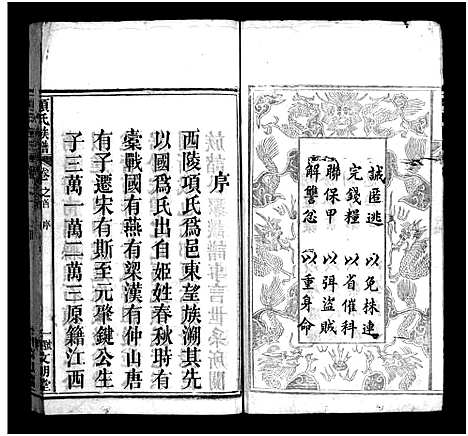 誡匿逃 以免株連
完錢糧 以省催科
聯保甲 以弭盜賊
解讐忿 以重身命
序
西陵項氏爲邑東望族溯其先
以國爲氏出自姬姓春秋時有
橐戰國有燕有梁漢有仲山唐
有子遷宋有斯至元聚鍵公生
子三萬一萬二萬三原籍江西
項氏族譜 卷之首 序
文明堂